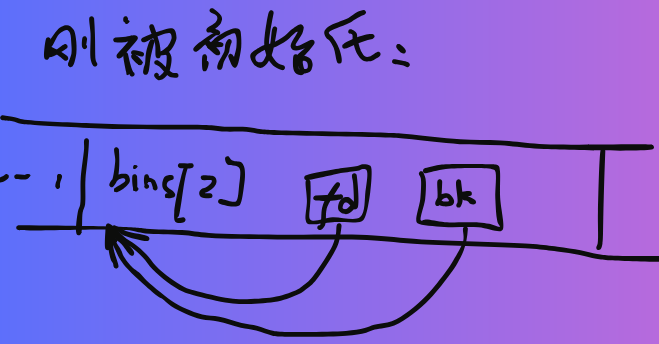 刚被初始化：
... , bins[2] fd bk